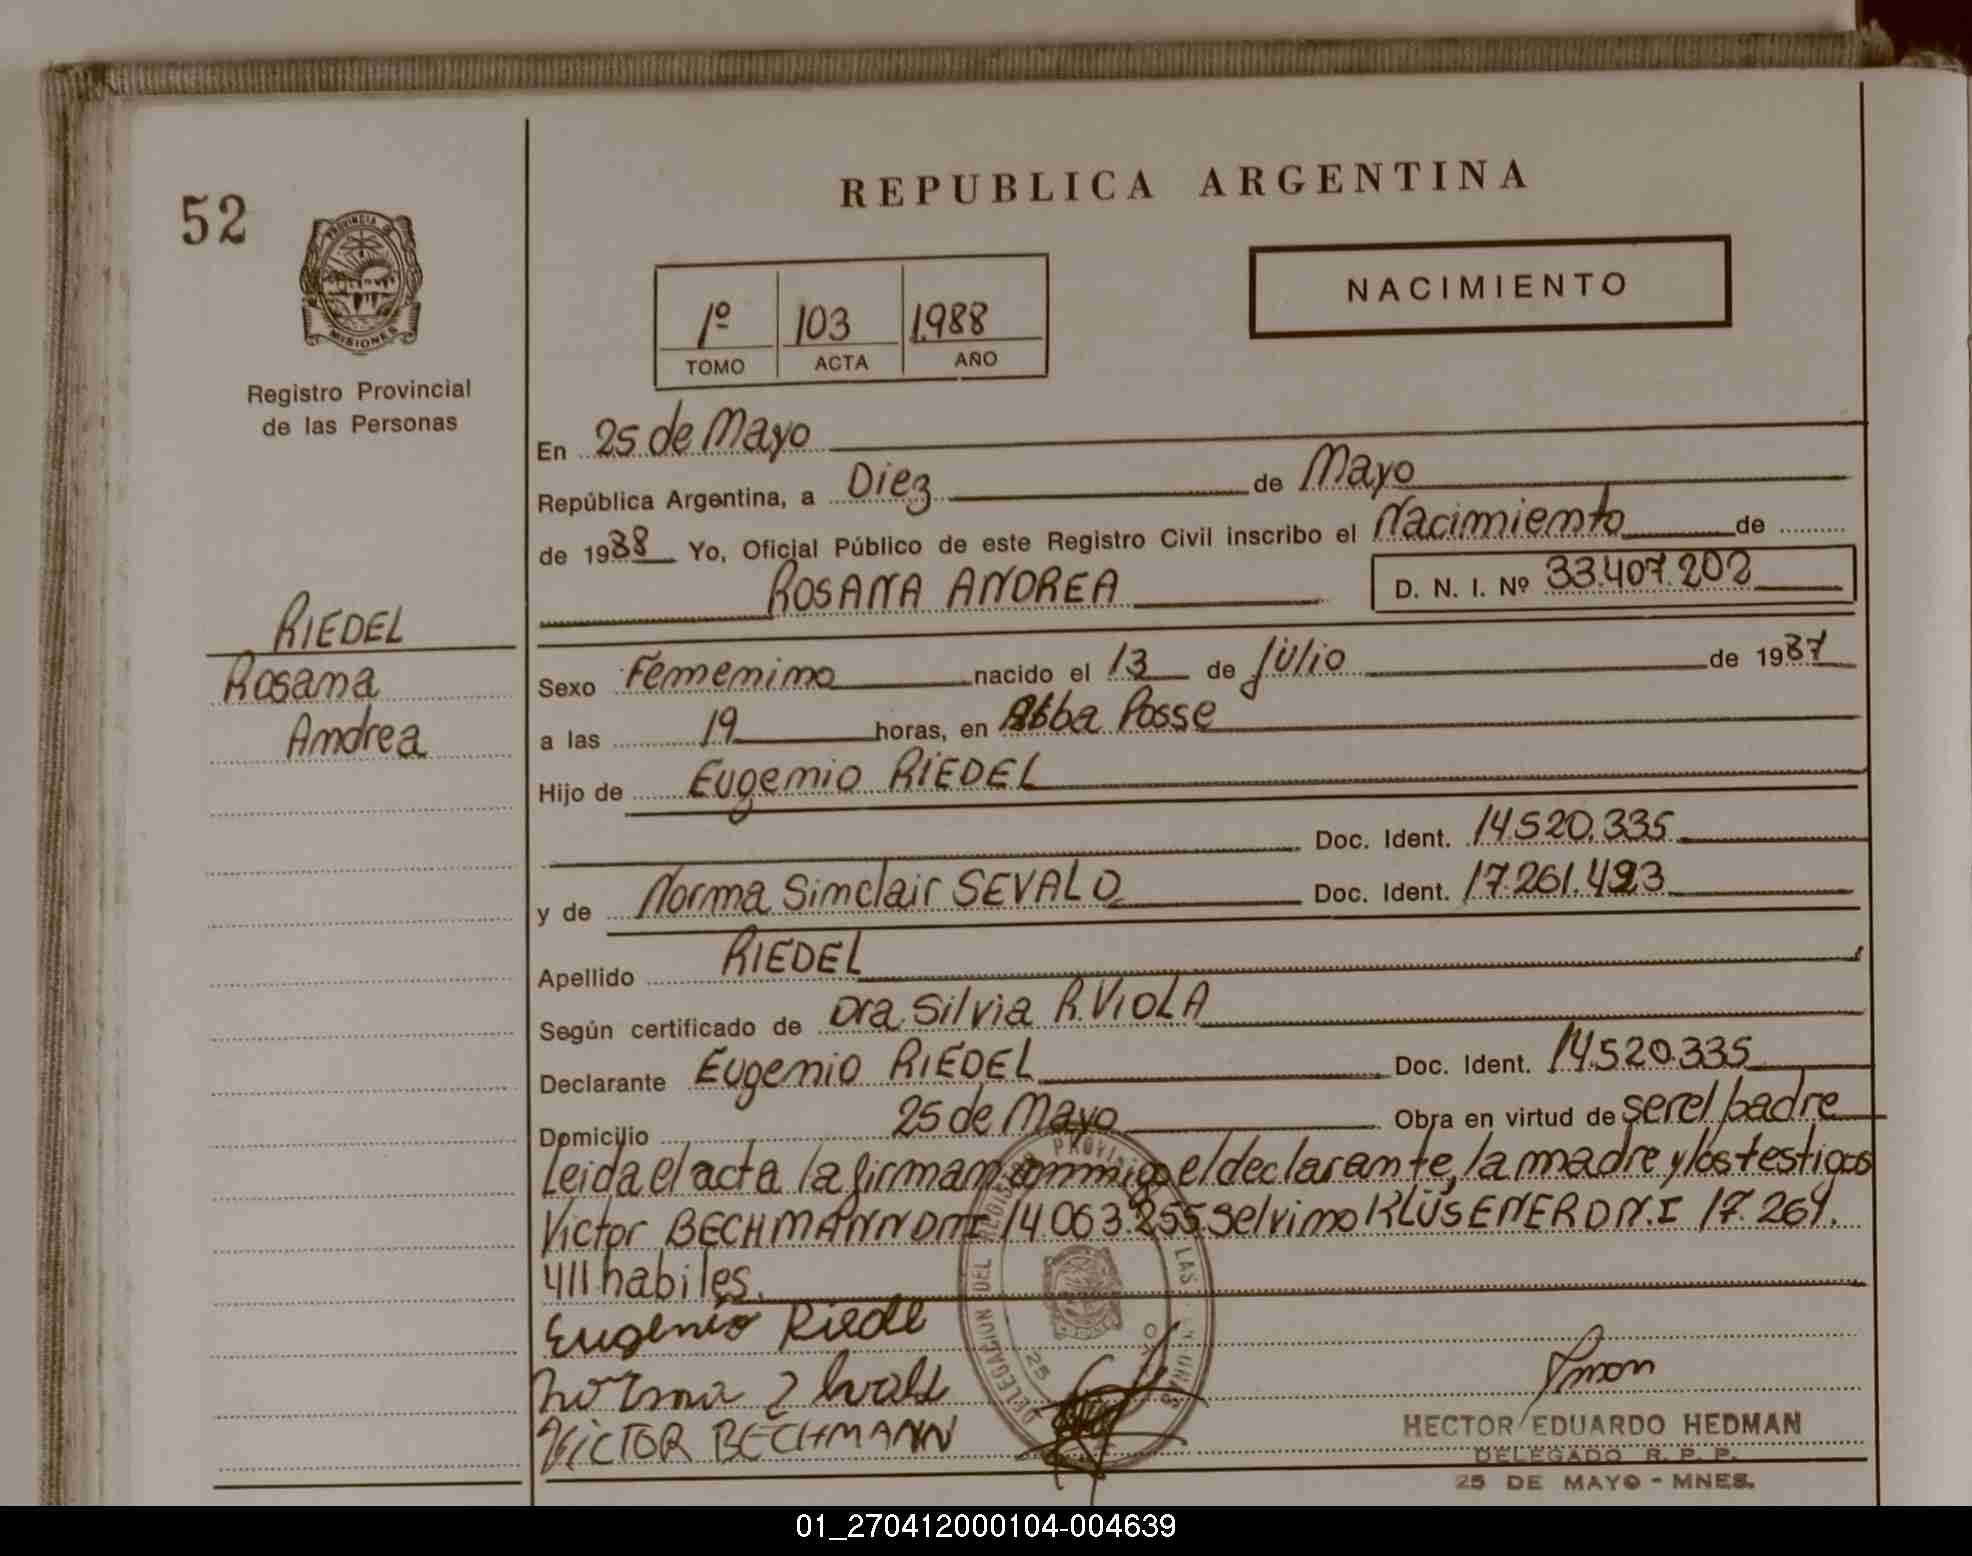 REPUBLICA ARGENTINA
52
PROVINCIA DE
MISIONES
Registro Provincial
de las Personas
NACIMIENTO
1º 103 1.988
TOMO ACTA AÑO
En 25 de Mayo
República Argentina, a Diez de Mayo
de 1988 Yo, Oficial Público de este Registro Civil inscribo el Nacimiento de
ROSANA ANDREA D. N. I. Nº 33.407.202
RIEDEL
Rosana
Andrea
Sexo Femenino nacido el 13 de Julio de 1987
a las 19 horas, en Alba Posse
Hijo de Eugenio RIEDEL
Doc. Ident. 14.520.335
y de Norma Sinclair SEVALD Doc. Ident. 17.261.493
Apellido RIEDEL
Según certificado de Dra. Silvia R. VIOLA
Declarante Eugenio RIEDEL Doc. Ident. 14.520.335
Domicilio 25 de Mayo Obra en virtud de ser el padre
Leida el acta la firman conmigo el declarante, la madre y los testigos
Victor BECHMANN DNI 14.063.255. Selvino KLÜSENER D.N.I 17.261.
411 habiles.
Eugenio Riedel
Norma
VICTOR BECHMANN
DELEGACION DEL REGISTRO PROVINCIAL LAS
25
HECTOR EDUARDO HEDMAN
DELEGADO R. P. P.
25 DE MAYO - MNES.
01_270412000104-004639